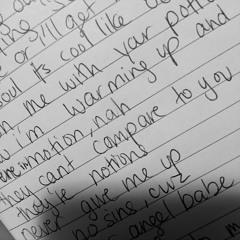 or I'll get
soul is cool like
me with your potio
i'm warming up and
motion, nah
they cant compare to you
they're notions
never give me up
no sins, cuz
angel babe